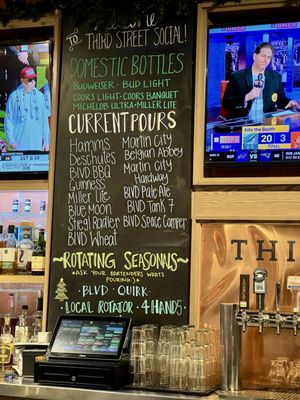 Welcome
To THIRD STREET SOCIAL!
DOMESTIC BOTTLES
BUDWEISER · BUD LIGHT
COORS LIGHT · COORS BANQUET
MICHELOB ULTRA · MILLER LITE
CURRENT POURS
Hamms
Deschutes
BLVD BBQ
Guinness
Miller Lite
Blue Moon
Stiegl Radler
BLVD Wheat
Martin City
Belgian Abbey
Martin City
Hardway
BLVD Pale Ale
BLVD Tank 7
BLVD Space Camper
~ROTATING SEASONALS~
*ASK YOUR BARTENDERS WHATS
POURING*
BLVD · QUIRK
LOCAL ROTATOR · 4 HANDS
1st & 10
Into the South
20
3
FINAL
THI